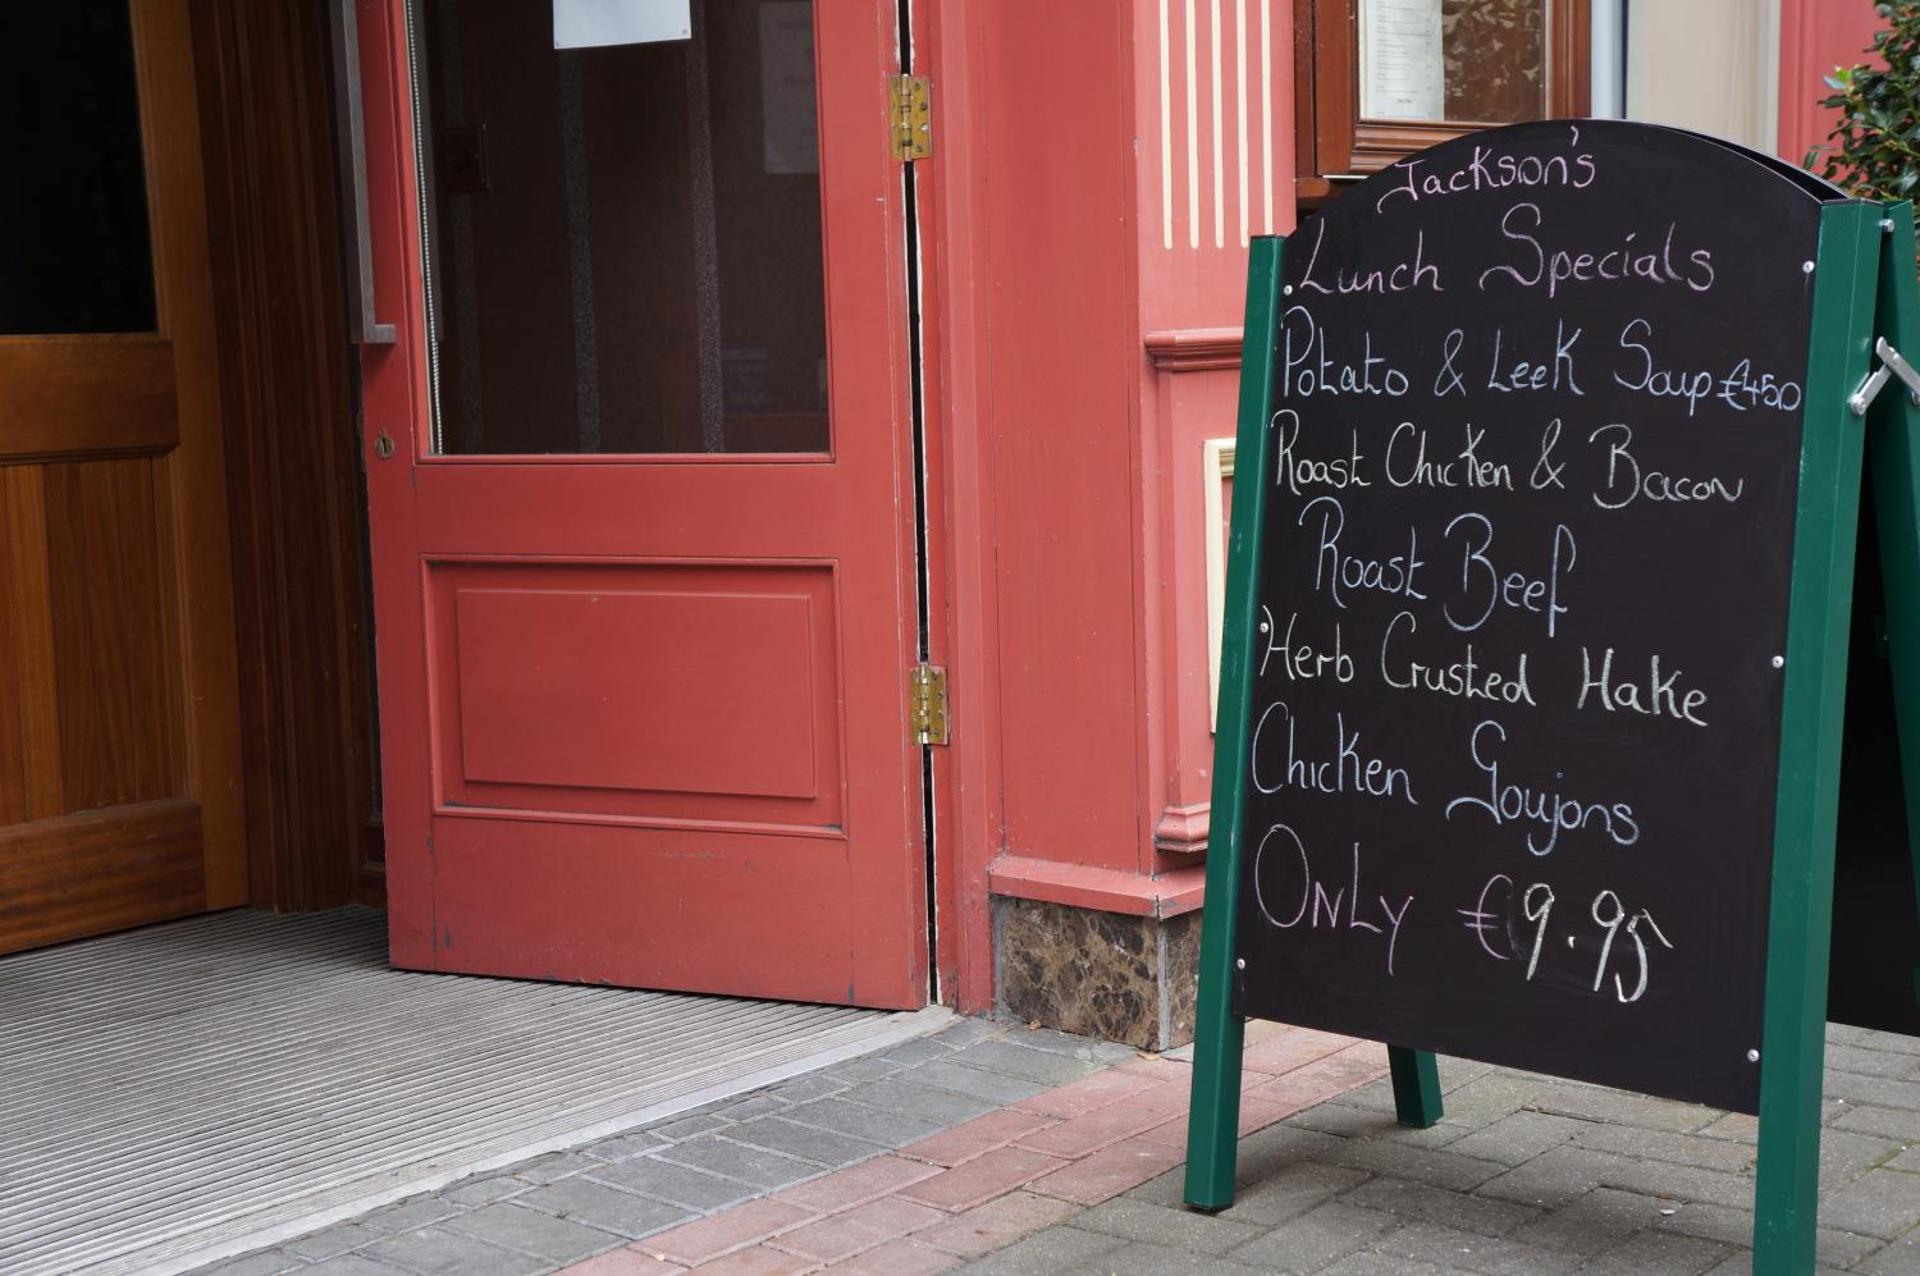 Jackson's
Lunch Specials
Potato & Leek Soup €4.50
Roast Chicken & Bacon
Roast Beef
Herb Crusted Hake
Chicken Goujons
Only €9.95